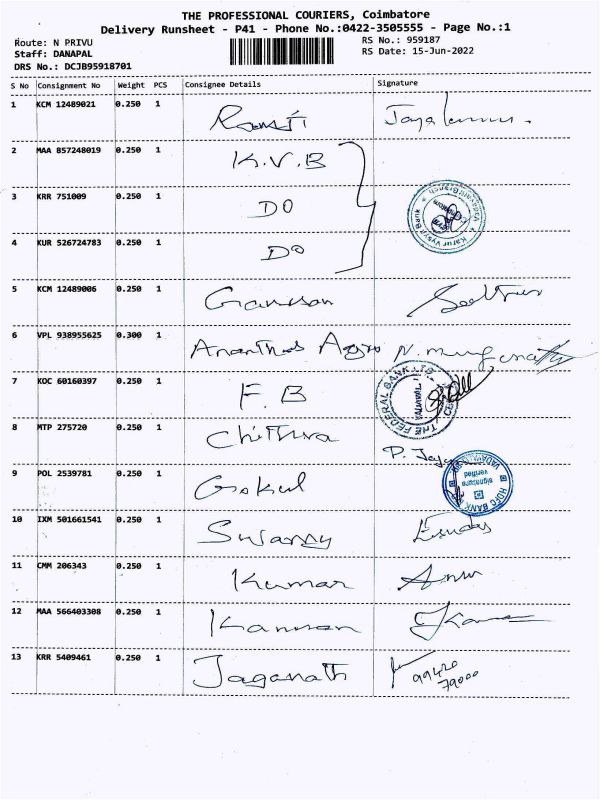 THE PROFESSIONAL COURIERS, Coimbatore
Delivery Runsheet - P41 - Phone No.:0422-3505555 - Page No.:1
Route: N PRIVU
RS No.: 959187
Staff: DANAPAL
RS Date: 15-Jun-2022
DRS No.: DCJB95918701
S No Consignment No Weight PCS Consignee Details Signature
1 KCM 12489021 0.250 1
2 MAA 857248019 0.250 1 K.V.B
3 KRR 751009 0.250 1 DO
Karur Vysya Bank
4 KUR 526724783 0.250 1 DO
5 KCM 12489006 0.250 1
6 VPL 938955625 0.300 1
7 KOC 60160397 0.250 1 F.B
THE FEDERAL BANK LTD
8 MTP 275720 0.250 1 Chithra
9 POL 2539781 0.250 1 Gokul
HDFC BANK
signature
verified
10 IXM 501661541 0.250 1 Swamy
11 CMM 206343 0.250 1 Kumar
12 MAA 566403308 0.250 1 Kannan
13 KRR 5409461 0.250 1 Jaganath 99420
79000